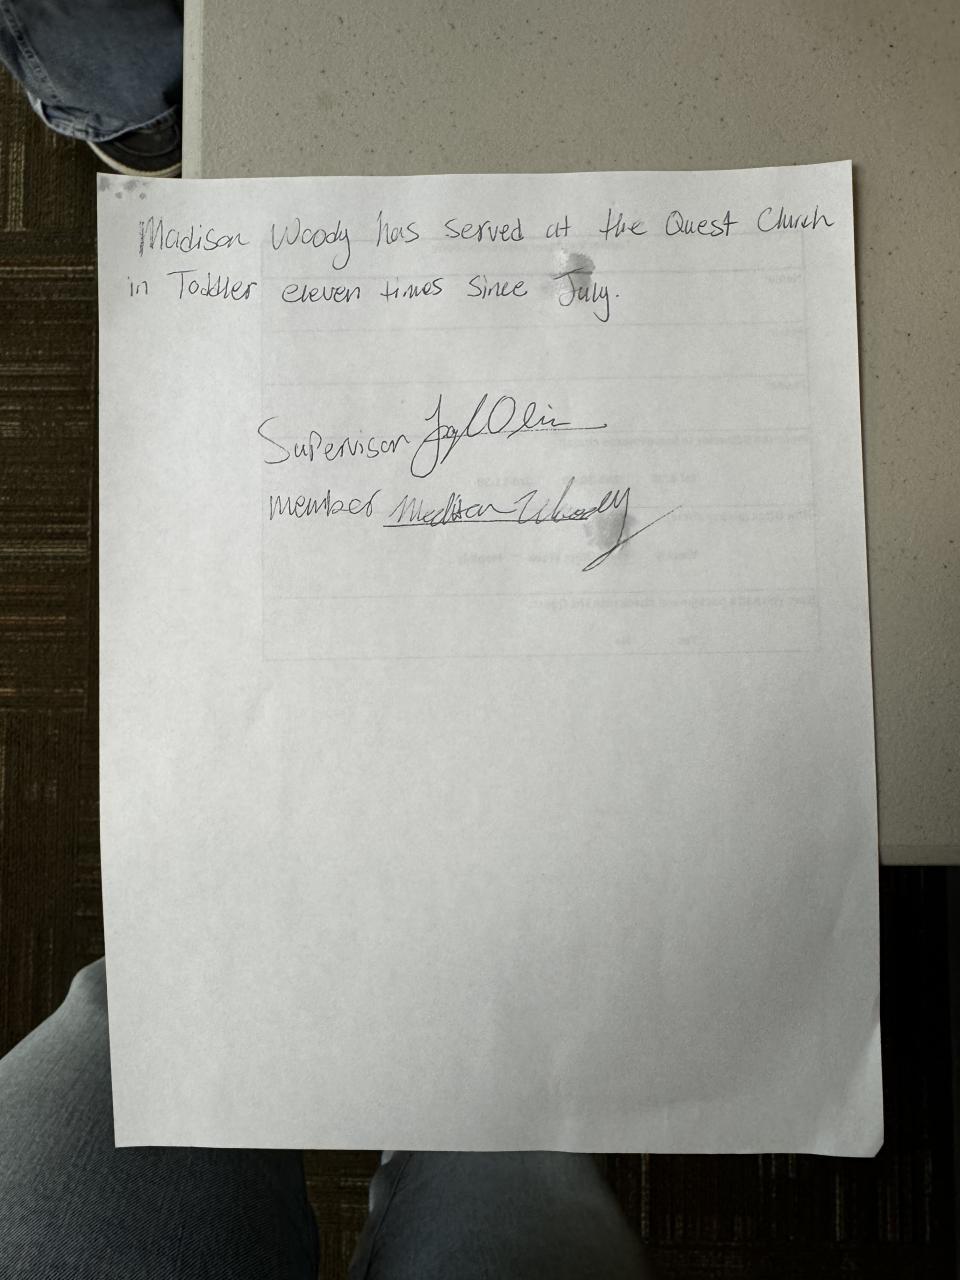 Madison Woody has served at the Quest Church
in Toddler eleven times since July.
Supervisor
member Madison Woody